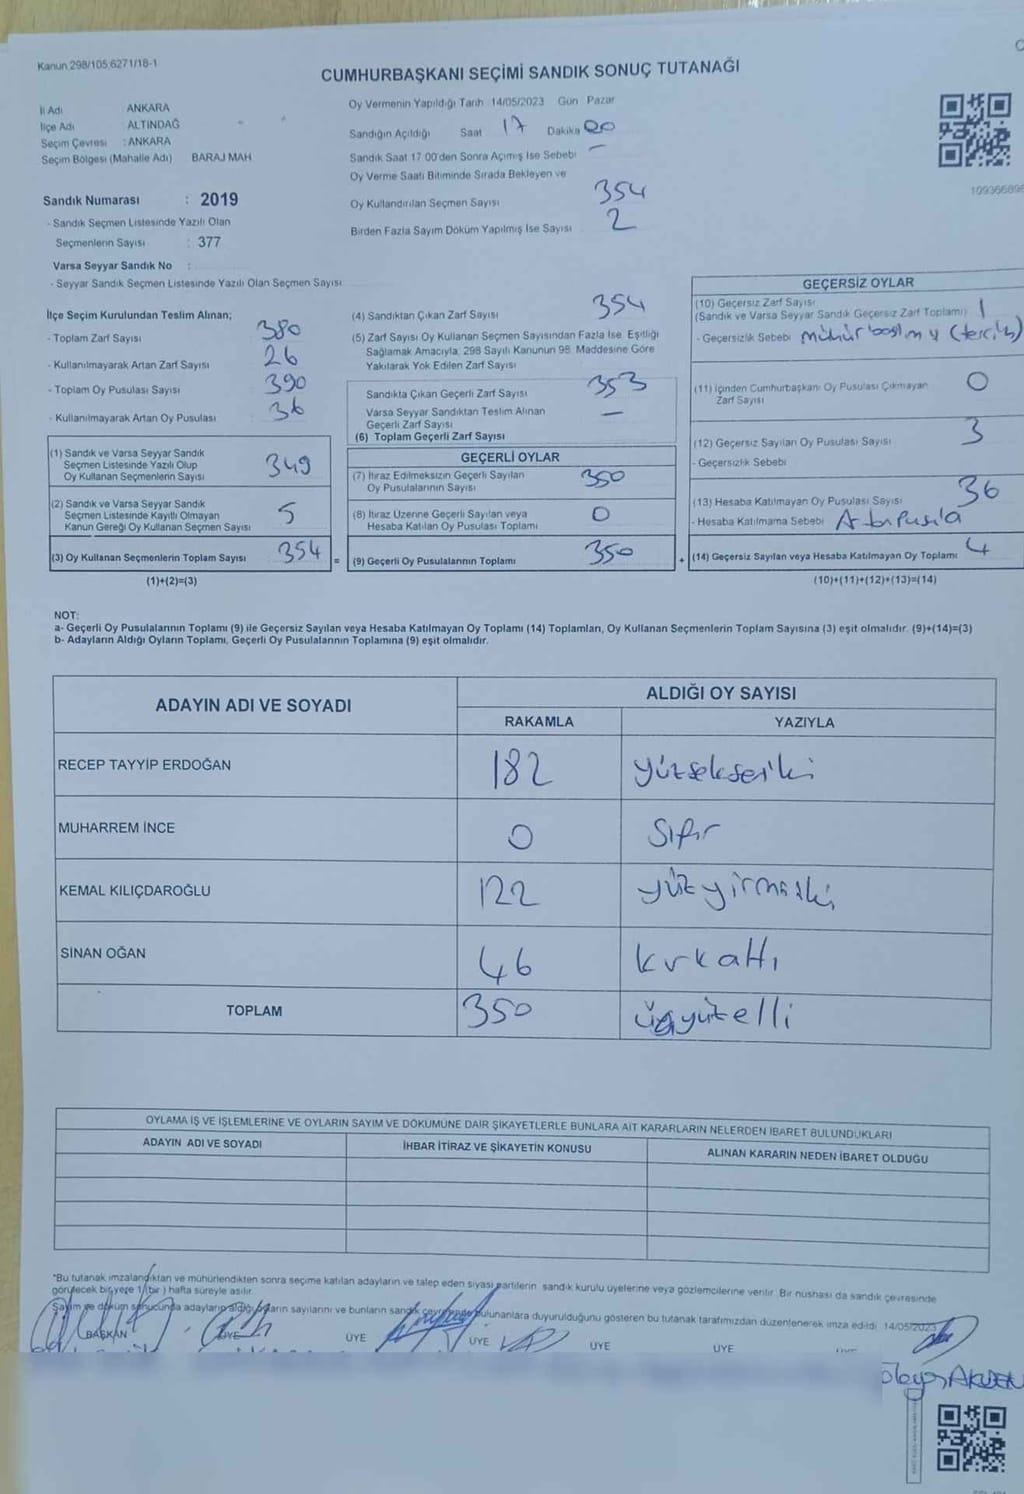 Kanun 298/105,6271/18-1
CUMHURBAŞKANI SEÇİMİ SANDIK SONUÇ TUTANAĞI
İl Adı ANKARA
İlçe Adı ALTINDAĞ
Seçim Çevresi : ANKARA
Seçim Bölgesi (Mahalle Adı) BARAJ MAH
Sandık Numarası : 2019
- Sandık Seçmen Listesinde Yazılı Olan
Seçmenlerin Sayısı : 377
Varsa Seyyar Sandık No :
- Seyyar Sandık Seçmen Listesinde Yazılı Olan Seçmen Sayısı
Oy Vermenin Yapıldığı Tarih 14/05/2023 Gün Pazar
Sandığın Açıldığı Saat 17 Dakika 00
Sandık Saat 17 00'den Sonra Açımış İse Sebebi –
Oy Verme Saati Bitiminde Sırada Bekleyen ve
Oy Kullandırılan Seçmen Sayısı 354
Birden Fazla Sayım Döküm Yapılmış İse Sayısı 2
109366895
İlçe Seçim Kurulundan Teslim Alınan;
- Toplam Zarf Sayısı 380
- Kullanılmayarak Artan Zarf Sayısı 26
- Toplam Oy Pusulası Sayısı 390
- Kullanılmayarak Artan Oy Pusulası 36
(1) Sandık ve Varsa Seyyar Sandık
Seçmen Listesinde Yazılı Olup
Oy Kullanan Seçmenlerin Sayısı 349
(2) Sandık ve Varsa Seyyar Sandık
Seçmen Listesinde Kayıtlı Olmayan
Kanun Gereği Oy Kullanan Seçmen Sayısı 5
(3) Oy Kullanan Seçmenlerin Toplam Sayısı 354 =
(1)+(2)=(3)
(4) Sandıktan Çıkan Zarf Sayısı 354
(5) Zarf Sayısı Oy Kullanan Seçmen Sayısından Fazla İse, Eşitliği
Sağlamak Amacıyla, 298 Sayılı Kanunun 98. Maddesine Göre
Yakılarak Yok Edilen Zarf Sayısı
Sandıkta Çıkan Geçerli Zarf Sayısı 353
Varsa Seyyar Sandıktan Teslim Alınan
Geçerli Zarf Sayısı –
(6) Toplam Geçerli Zarf Sayısı
GEÇERLİ OYLAR
(7) İtiraz Edilmeksizin Geçerli Sayılan
Oy Pusulalarının Sayısı 350
(8) İtiraz Üzerine Geçerli Sayılan veya
Hesaba Katılan Oy Pusulası Toplamı 0
(9) Geçerli Oy Pusulalarının Toplamı 350 +
GEÇERSİZ OYLAR
(10) Geçersiz Zarf Sayısı
(Sandık ve Varsa Seyyar Sandık Geçersiz Zarf Toplamı) 1
- Geçersizlik Sebebi
(11) İçinden Cumhurbaşkanı Oy Pusulası Çıkmayan
Zarf Sayısı 0
(12) Geçersiz Sayılan Oy Pusulası Sayısı 3
- Geçersizlik Sebebi
(13) Hesaba Katılmayan Oy Pusulası Sayısı 36
- Hesaba Katılmama Sebebi
(14) Geçersiz Sayılan veya Hesaba Katılmayan Oy Toplamı 4
(10)+(11)+(12)+(13)=(14)
NOT:
a- Geçerli Oy Pusulalarının Toplamı (9) ile Geçersiz Sayılan veya Hesaba Katılmayan Oy Toplamı (14) Toplamları, Oy Kullanan Seçmenlerin Toplam Sayısına (3) eşit olmalıdır. (9)+(14)=(3)
b- Adayların Aldığı Oyların Toplamı, Geçerli Oy Pusulalarının Toplamına (9) eşit olmalıdır.
ADAYIN ADI VE SOYADI ALDIĞI OY SAYISI
RAKAMLA YAZIYLA
RECEP TAYYİP ERDOĞAN 182 yüzsekseniki
MUHARREM İNCE 0 Sıfır
KEMAL KILIÇDAROĞLU 122 yüzyirmiiki
SİNAN OĞAN 46 kırkaltı
TOPLAM 350 üçyüzelli
OYLAMA İŞ VE İŞLEMLERİNE VE OYLARIN SAYIM VE DÖKÜMÜNE DAİR ŞİKAYETLERLE BUNLARA AİT KARARLARIN NELERDEN İBARET BULUNDUKLARI
ADAYIN ADI VE SOYADI İHBAR İTİRAZ VE ŞİKAYETİN KONUSU ALINAN KARARIN NEDEN İBARET OLDUĞU
*Bu tutanak imzalandıktan ve mühürlendikten sonra seçime katılan adayların ve talep eden siyasi partilerin sandık kurulu üyelerine veya gözlemcilerine verilir. Bir nüshası da sandık çevresinde
görülecek bir yere 1 (bir) hafta süreyle asılır.
Sayım ve döküm sonucunda adayların aldığı oyların sayılarını ve bunların sandık çevresinde bulunanlara duyurulduğunu gösteren bu tutanak tarafımızdan düzenlenerek imza edildi. 14/05/2023
BAŞKAN ÜYE ÜYE ÜYE ÜYE ÜYE